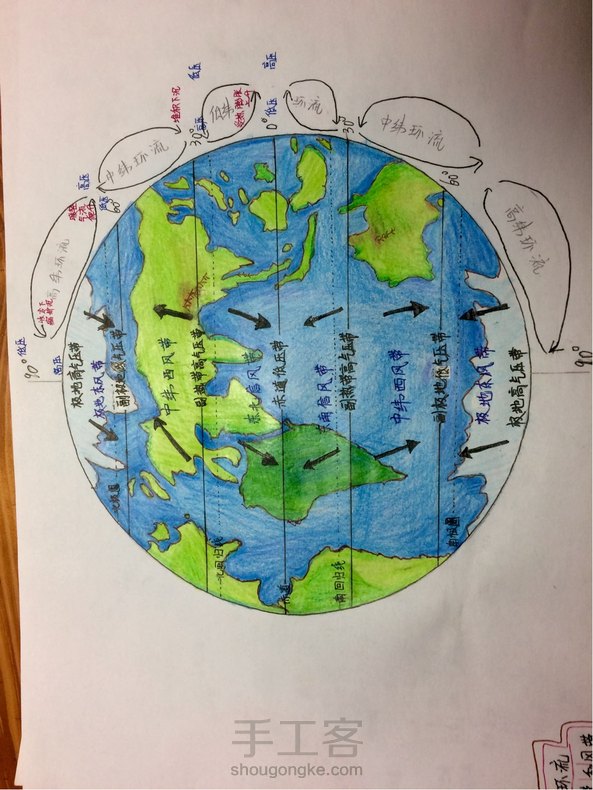 低压
高压
堆积下沉
低纬
受热膨胀上升
高压
30°
0°
低压
环流
30°
中纬环流
中纬环流
60°
高压
60°
高纬环流
高纬环流
90°
低压
高压
90°
极地高气压带
极地东风带
副极地低气压带
中纬西风带
副热带高气压带
东北信风带
赤道低气压带
东南信风带
副热带高气压带
中纬西风带
副极地低气压带
极地东风带
极地高气压带
北极圈
北回归线
赤道
南回归线
南极圈
环流
风带
手工客
shougongke.com